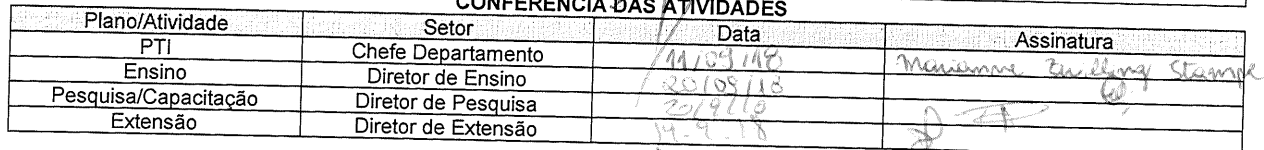 CONFERÊNCIA DAS ATIVIDADES
Plano/Atividade Setor Data Assinatura
PTI Chefe Departamento 11/09/18 Marianne Zwilling Stampe
Ensino Diretor de Ensino 20/09/18
Pesquisa/Capacitação Diretor de Pesquisa 20/9/18
Extensão Diretor de Extensão 14-9-18